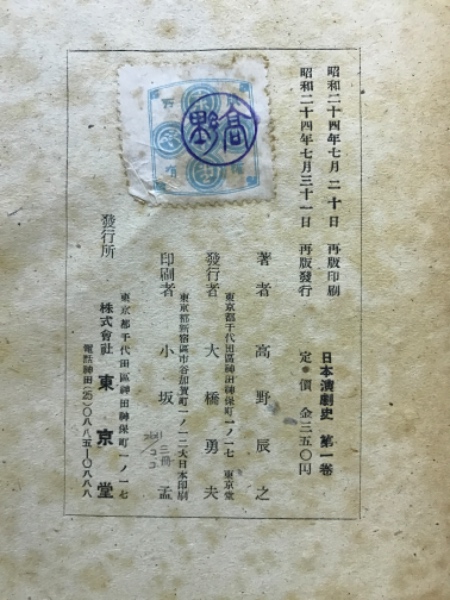 昭和二十四年七月二十日 再版印刷
昭和二十四年七月三十一日 再版發行
日本演劇史 第一卷
定價 金三五〇円
著者 高野辰之
東京都千代田區神田神保町一ノ一七 東京堂
發行者 大橋勇夫
東京都新宿區市谷加賀町一ノ一二大日本印刷
印刷者 小坂孟
發行所
東京都千代田區神田神保町一ノ一七
株式會社 東京堂
電話神田(25)〇八八五―〇八八八
高野
三冊